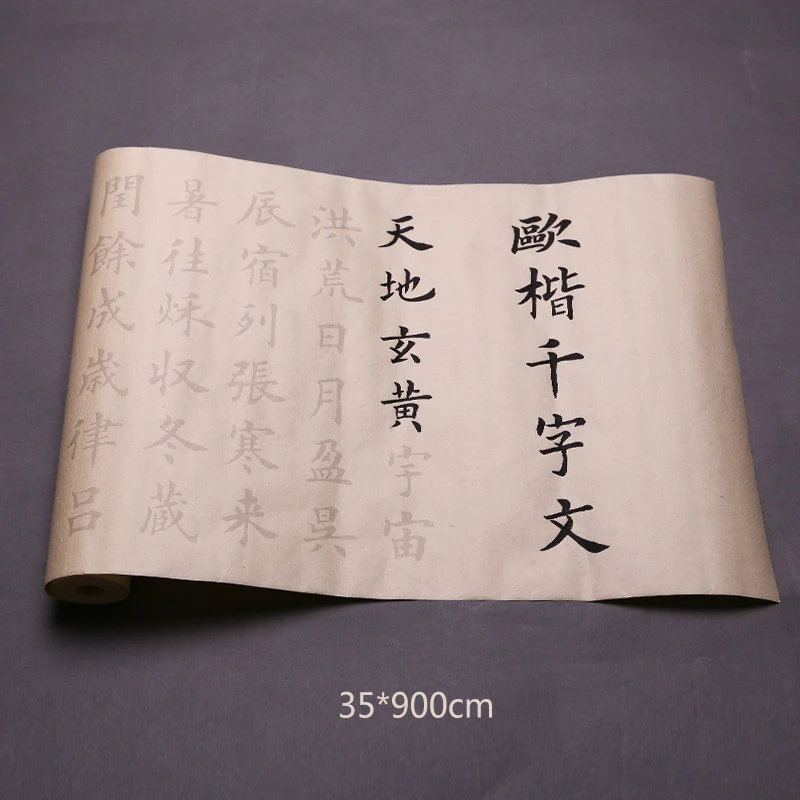 歐楷千字文
天地玄黄宇宙
洪荒日月盈昃
辰宿列張寒来
暑往秋収冬蔵
閏餘成歲律吕
35*900cm